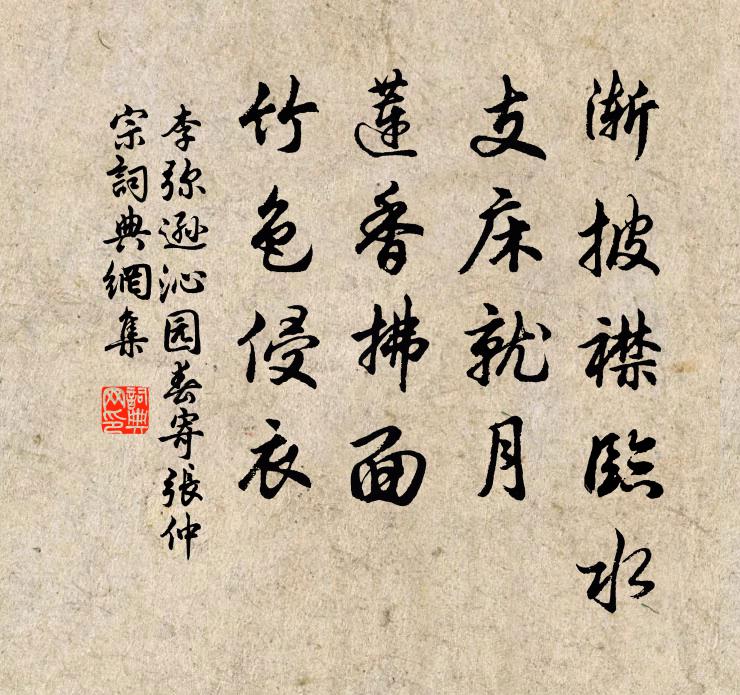 渐披襟临水
支床就月
莲香拂面
竹色侵衣
李弥逊沁园春寄張仲
宗詞典網集
詞典网印